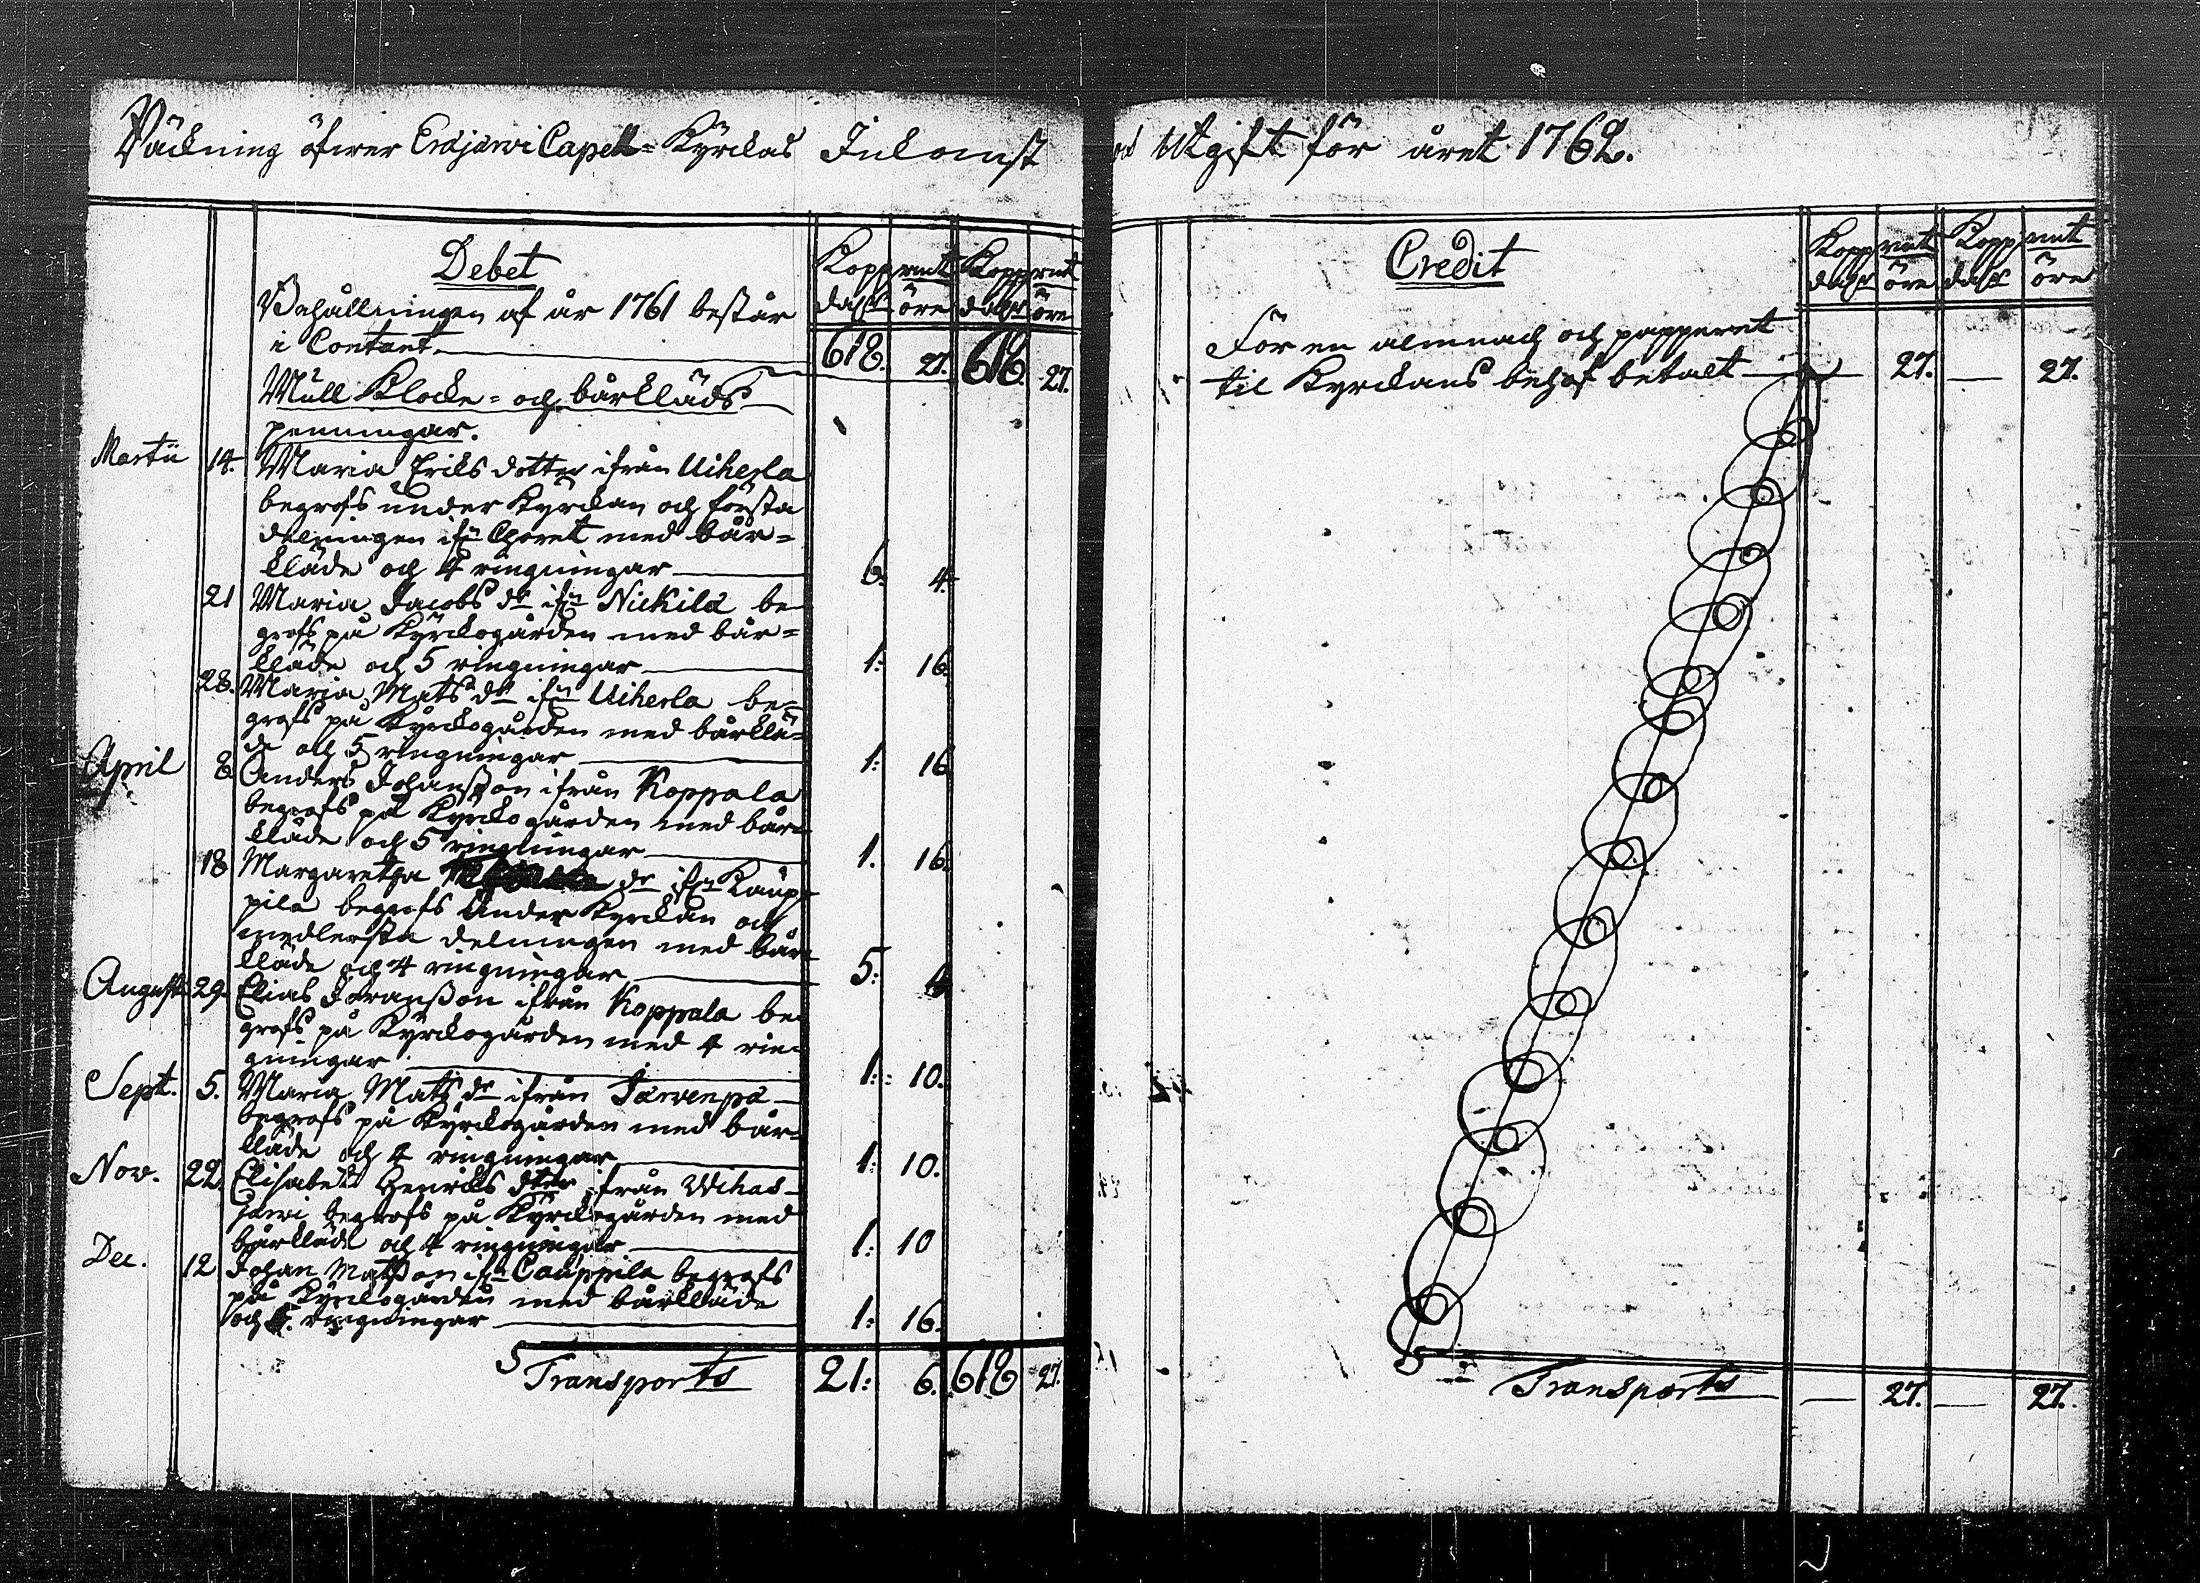 Räckning öfwer Eräjärwi Capell-Kyrckas Inkomst
och Utgift för året 1762.
Debet
Kopp rmt Kopp rmt
dahlr öre dahlr öre
Behållningen af år 1761 består
i Contant. 618. 27. 618. 27.
Mull Klocke- och bårkläds
penningar.
Martii 14. Maria Eriks dotter ifrån Uiherla
begrofs under Kyrckan och första
delningen ifrn Choret med bår-
kläde och 4 ringningar 6: 4.
21 Maria Jacobs dr ifrn Nickilä be-
grofs på Kyrckogården med bår-
kläde och 5 ringningar 1: 16.
28. Maria Mats dr ifrn Uiherla be-
grofs på Kyrckogården med bårklä-
de och 5 ringningar 1: 16
April 8. Anders Johansson ifrån Koppala
begrofs på Kyrckogården med bår-
kläde och 5 ringningar 1. 16.
18 Margaretha dr ifrn Kaup-
pila begrofs under Kyrckan och
medlersta delningen med bår-
kläde och 4 ringningar 5: 4
August 29. Elias Göransson ifrån Koppala be-
grofs på Kyrckogården med 4 rin-
gningar 1: 10.
Sept. 5. Maria Mats dr ifrån Järvenpä
begrofs på Kyrckogården med bår-
kläde och 4 ringningar 1: 10.
Nov. 22. Elisabet Henriks dtter ifrån Wihas-
järwi begrofs på Kyrckogården med
bårkläde och 4 ringningar 1: 10
Dec. 12 Johan Matsson ifrn Cauppila begrofs
på Kyrckogården med bårkläde
och 5. ringningar 1: 16.
Transports 21: 6. 618 27.
Credit
Kopp rmt Kopp rmt
dahlr öre dahlr öre
För en almnach och papperet
til Kyrckans behof betalt 27. 27.
Transports 27. 27.